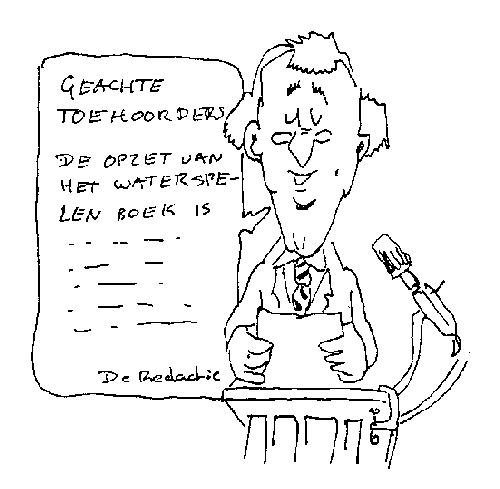 GEACHTE
TOEHOORDERS
DE OPZET VAN
HET WATERSPE-
LEN BOEK IS
De Redactie